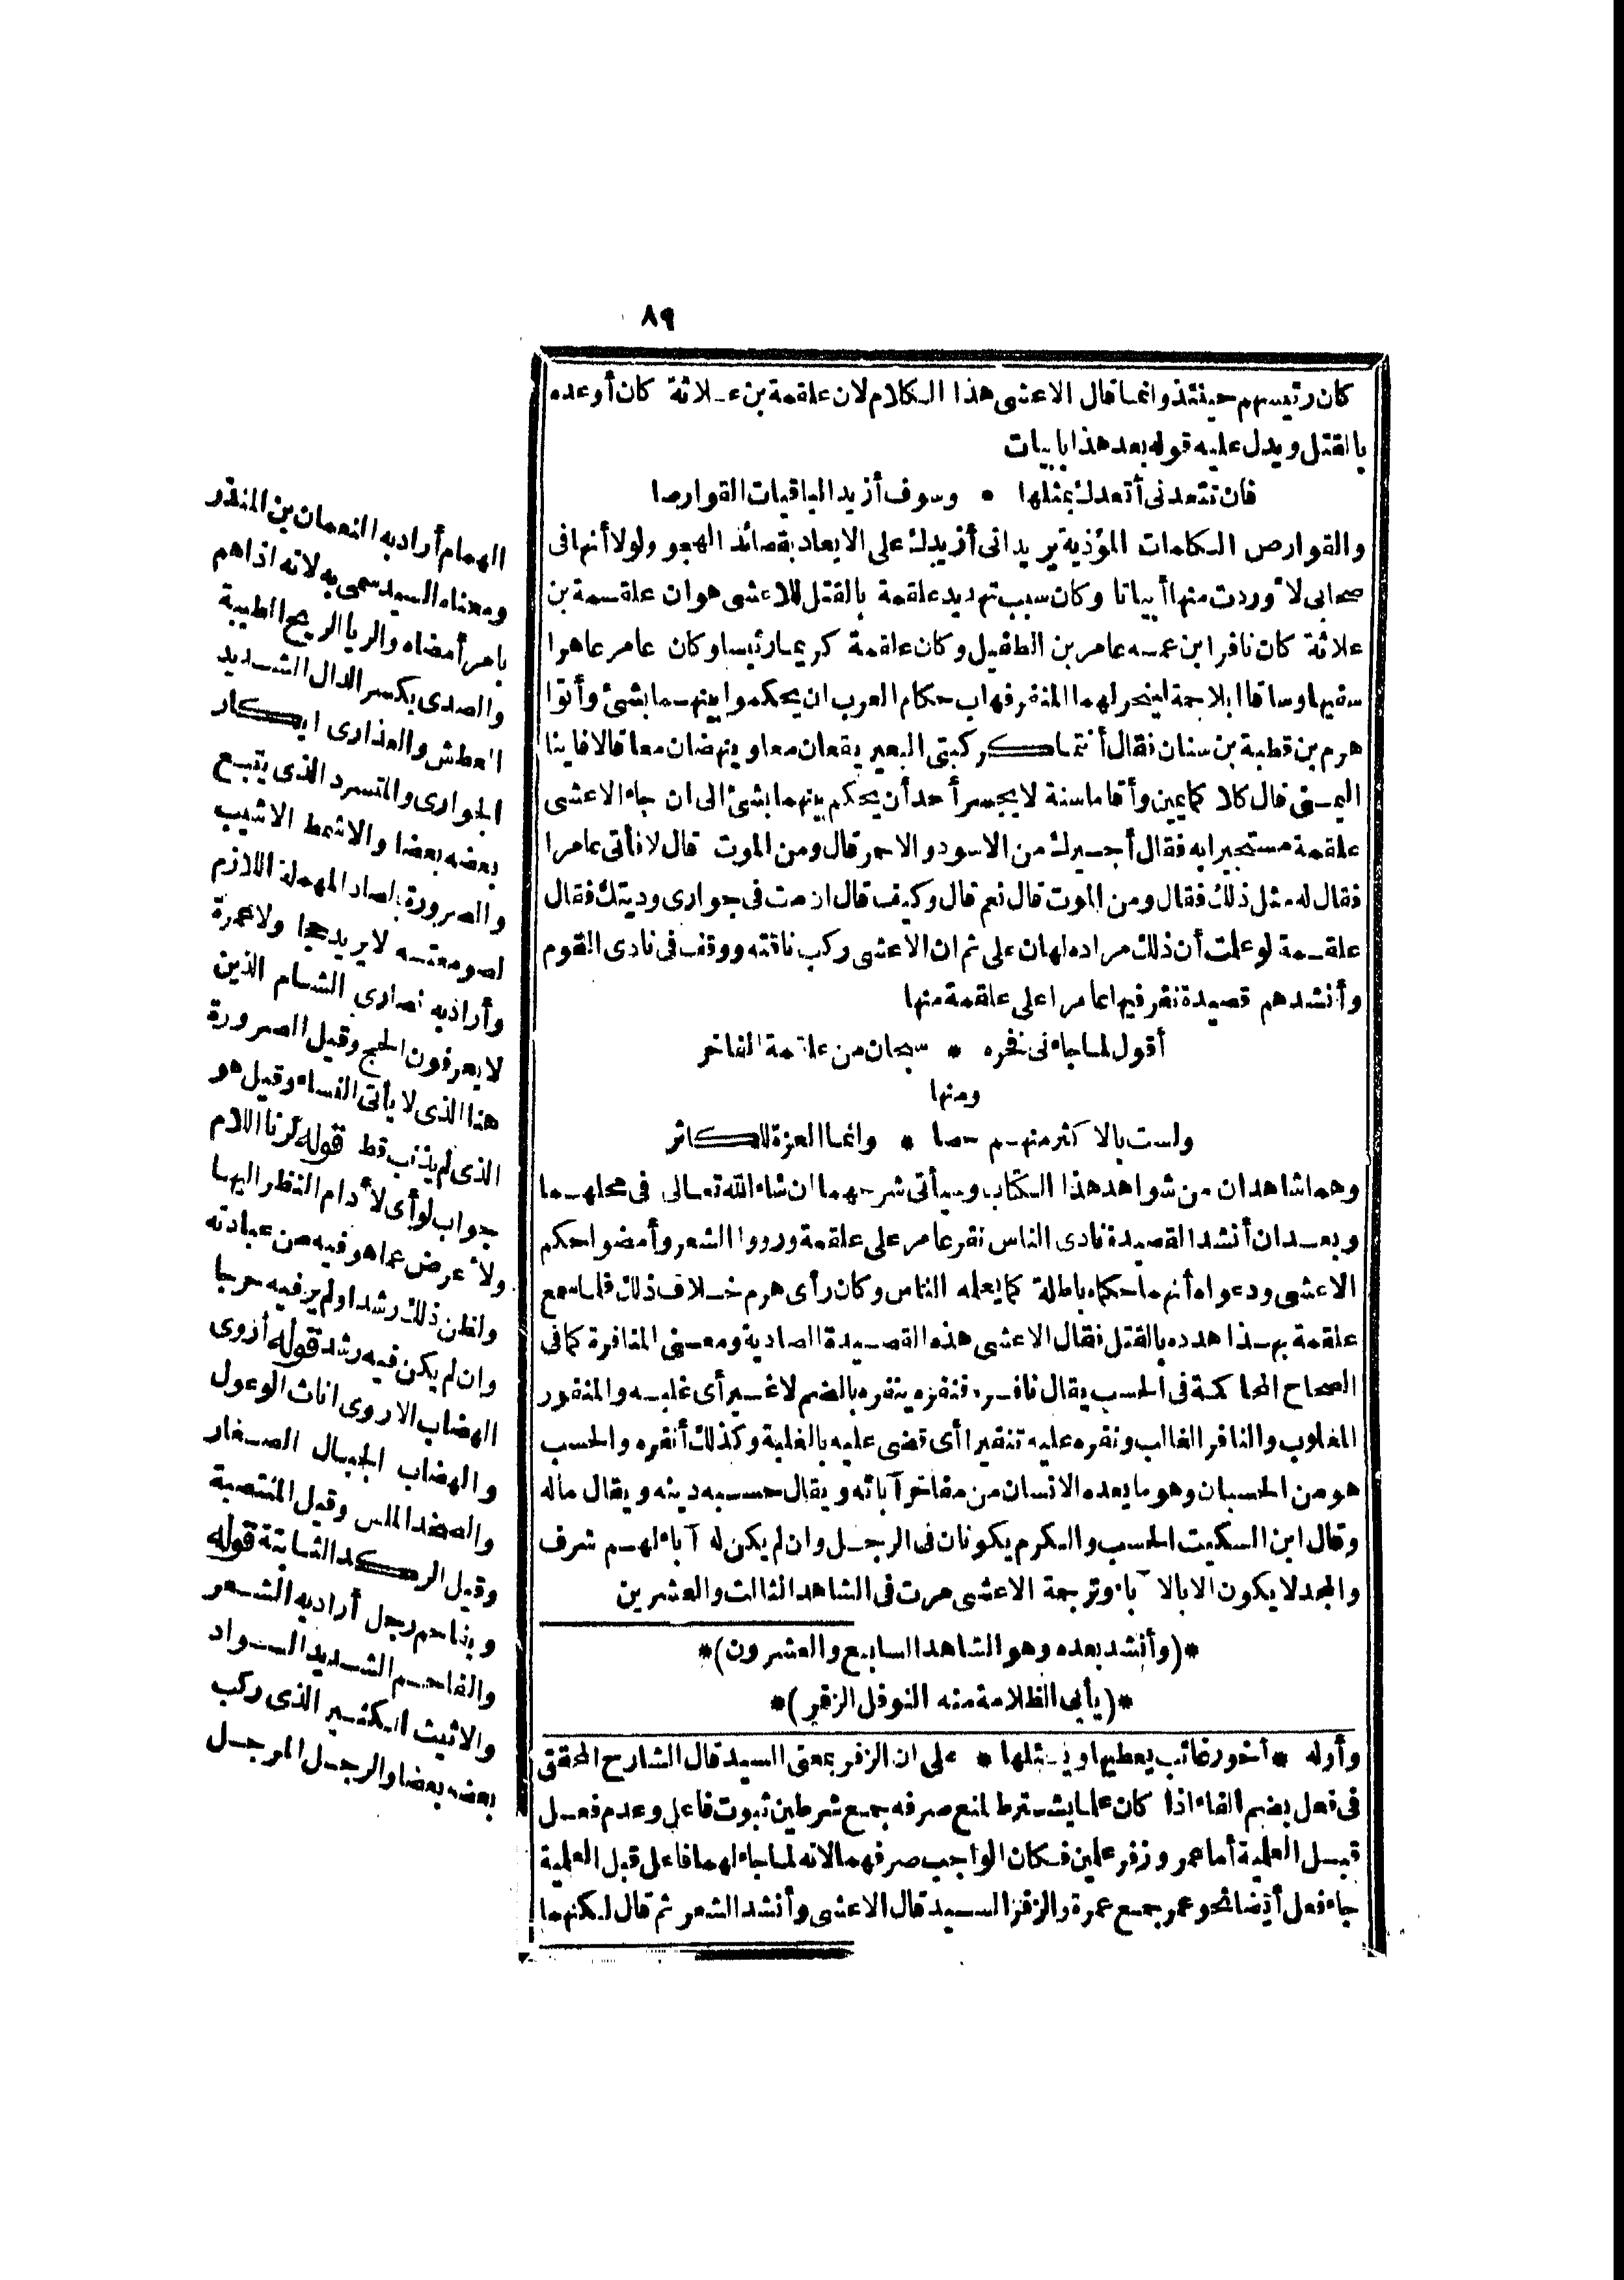 ٨٩
كان رئيسهم حينئذ وانما قال الاعشى هذا الكلام لان علقمة بن علاثة كان أوعده
بالقتل ويدل عليه قوله بعد هذا بابيات
فان تتعدنى أتعدك بمثلها * وسوف أزيد الباقيات القوارصا
والقوارص الكلمات المؤذية يريد انى أزيدك على الايعاد بقصائد الهجو ولولا أنها فى
صحابى لأوردت منها أبياتا وكان سبب تهديد علقمة بالقتل للاعشى هو ان علقمة بن
علاثة كان نافر ابن عمه عامر بن الطفيل وكان علقمة كريما رئيسا وكان عامر عاهرا
سفيها وساقا ابلا جمة لينحر لهما المنفر فهاب حكام العرب ان يحكموا بينهما بشئ وأتوا
هرم بن قطبة بن سنان فقال أنتما كركبتى البعير يقعان معا وينهضان معا قالا فاينا
اليمنى قال كلا كما يمين وأقاما سنة لا يجسر أحد أن يحكم بينهما بشئ الى ان جاء الاعشى
علقمة مستجيرا به فقال أجيرك من الاسود والاحمر قال ومن الموت قال لا فأتى عامرا
فقال له مثل ذلك فقال ومن الموت قال نعم قال وكيف قال ان مت فى جوارى وديتك فقال
علقمة لو علمت أن ذلك مراده لهان على ثم ان الاعشى ركب ناقته ووقف فى نادى القوم
وأنشدهم قصيدة نفر فيها عامرا على علقمة منها
أقول لما جاءنى فخره * سبحان من علقمة الفاخر
ومنها
ولست بالاكثر منهم حصا * وانما العزة للكاثر
وهما شاهدان من شواهد هذا الكتاب وسيأتى شرحهما ان شاء الله تعالى فى محلهما
وبعد ان أنشد القصيدة نادى الناس نفر عامر على علقمة ورووا الشعر وأمضوا حكم
الاعشى ودعواه أنهما حكماه باطلة كما يعلمه الناس وكان رأى هرم خلاف ذلك فلما سمع
علقمة بهذا هدده بالقتل فقال الاعشى هذه القصيدة الصادية ومعنى المنافرة كما فى
الصحاح المحاكمة فى الحسب يقال نافره فنفره ينفره بالضم لا غير أى غلبه والمنفور
المغلوب والنافر الغالب ونفره عليه تنفيرا أى قضى عليه بالغلبة وكذلك أنفره والحسب
هو من الحسبان وهو ما يعده الانسان من مفاخر آبائه ويقال حسبه دينه ويقال ماله
وقال ابن السكيت الحسب والكرم يكونان فى الرجل وان لم يكن له آباء لهم شرف
والمجد لا يكون الا بالآباء وترجمة الاعشى مرت فى الشاهد الثالث والعشرين
*(وأنشد بعده وهو الشاهد السابع والعشرون)*
*(يأبى الظلامة منه النوفل الزفر)*
وأوله * أخو رغائب يعطيها ويسئلها * على ان الزفر بمعنى السيد قال الشارح المحقق
فى فعل بضم الفاء اذا كان علما يشترط لمنع صرفه جمع شرطين ثبوت فاعل وعدم فعل
قبل العلمية أما عمر وزفر علمين فكان الواجب صرفهما لانه لما جاء لهما فاعل قبل العلمية
جاء فعل أيضا نحو عمر جمع عمرة والزفر السيد قال الاعشى وأنشد الشعر ثم قال لكنهما
الهمام أراد به النعمان بن المنذر
ومعناه السيد سمى به لانه اذا هم
بامر أمضاه والريا الريح الطيبة
والصدى بكسر الدال الشديد
العطش والعذارى ابكار
الجوارى والمتسرد الذى يتبع
بعضه بعضا والاشمط الاشيب
والصرورة بالصاد المهملة اللازم
لصومعته لا يريد حجا ولا عمرة
وأراد به نصارى الشام الذين
لا يعرفون الحج وقيل الصرورة
هنا الذى لا يأتى النساء وقيل هو
الذى لم يذنب قط قوله لرنا اللام
جواب لو أى لأدام النظر اليها
ولأعرض عما هو فيه من عبادته
ولظن ذلك رشدا ولم ير فيه حرجا
وان لم يكن فيه رشد قوله أروى
الهضاب الاروى اناث الوعول
والهضاب الجبال الصغار
والصخد الملس وقيل المنتصبة
وقيل الركد الثابتة قوله
وبفاحم رجل أراد به الشعر
والفاحم الشديد السواد
والاثيث الكثير الذى ركب
بعضه بعضا والرجل المرجل